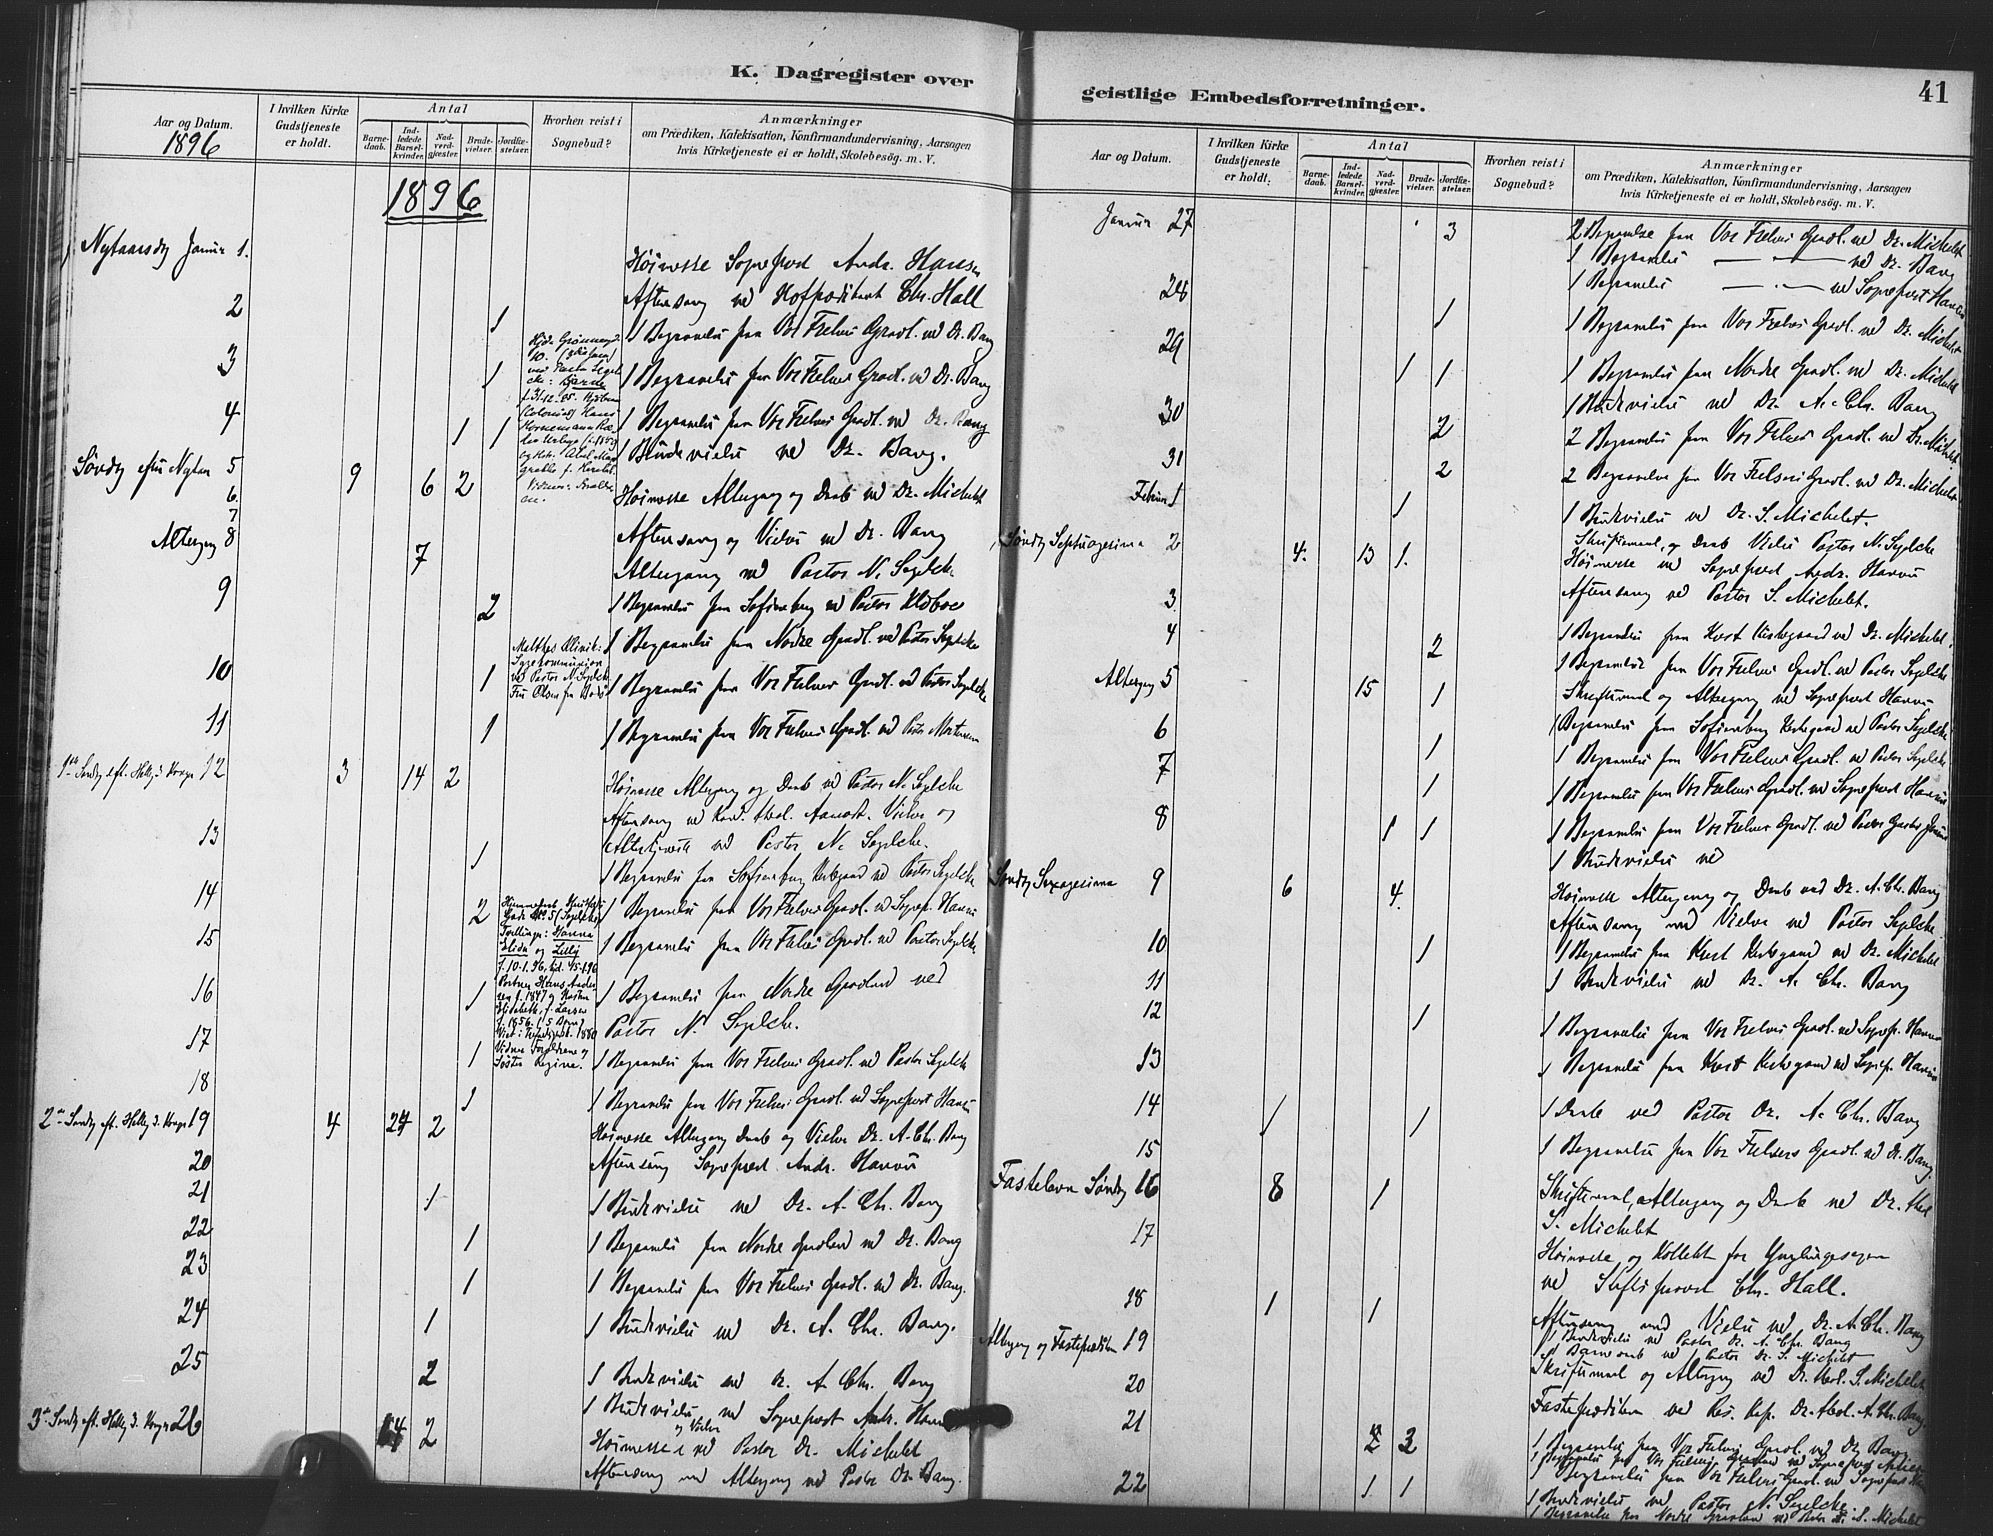 K. Dagregister over
Aar og Datum.
1896
I hvilken Kirke Gudstjeneste er holdt.
Antal
Barnedaab.
Indledede Barselkvinder.
Nadverdgjæster.
Brudevielser.
Jordfæstelser.
Hvorhen reist i Sognebud?
Anmærkninger
om Prædiken, Katekisation, Konfirmandundervisning, Aarsagen
hvis Kirketjeneste ei er holdt, Skolebesøg. m. V.
1896
Nytaarsdag Januar 1. Høimesse Sogneprest Andr. Hansen
Aftensang ved Hofprædikant Chr. Hall
2 1 1 Begravelse fra Vor Frelsers Gravl. ved Dr. Bang
3 1 1 Begravelse fra Vor Frelsers Gravl. ved Dr. Bang
4 1 1 1 Begravelse fra Vor Frelsers Gravl. ved Dr. Bang
1 Brudevielse ved Dr. Bang.
Søndag efter Nytaar 5 9 6 2 Høimesse Altergang og Daab ved Dr. Michelet
6.
7 Aftensang og Vielse ved Dr. Bang
Altergang 8 7 Altergang ved Pastor N. Segelcke
9 2 1 Begravelse fra Sofienberg ved Pastor Klaboe
1 Begravelse fra Nordre Gravl. ved Pastor Segelcke
Malthes Klinik:
Sygekommunion
ved Pastor N. Segelcke
Fru Olsen fra Bodø
10 1 1 Begravelse fra Vor Frelsers Gravl. ved Pastor Segelcke
11 1 1 Begravelse fra Vor Frelsers Gravl. ved Pastor Mortensen
1ste Søndag eft. Hellig 3 Konger 12 3 14 2 Høimesse Altergang og Daab ved Pastor N. Segelcke
Aftensang ved Kand. theol. Vielse og
Altertjeneste ved Pastor N. Segelcke.
13 1 1 Begravelse fra Sofienberg Kirkegaard ved Pastor Segelcke
14 2 1 Begravelse fra Vor Frelsers Gravl. ved Sognep. Hansen
15 1 Begravelse fra Vor Frelsers Gravl. ved Pastor Segelcke.
Tvillinger: Hanna
Elida og Lilly
f. 10-1.96,
16 1 1 Begravelse fra Nordre Gravlund ved
Pastor N. Segelcke.
17 1 1 Begravelse fra Vor Frelsers Gravl. ved Pastor Segelcke
18 1 1 Begravelse fra Vor Frelsers Gravl. ved Sogneprest Hansen
2den Søndag eft. Hellig 3. Konger 19 4 24 2 Høimesse Altergang Daab og Vielse Dr. A. Chr. Bang
20 Aftensang Sogneprest Andr. Hansen
21 1 1 Brudevielse ved Dr. A. Chr. Bang
22 1 1 Begravelse fra Nordre Gravlund ved Dr. Bang
23 1 1 Begravelse fra Vor Frelsers Gravl. ved Dr. Bang.
24 1 1 Brudevielse ved Dr. A. Chr. Bang.
25 2 1 Brudevielse ved Dr. A. Chr. Bang
1 Brudevielse ved Sogneprest Andr. Hansen
3die Søndag eft. Hellig 3. Konger 26 14 2 Høimesse og Vielse ved Pastor Dr. Michelet
Aftensang med Altergang ved Pastor Dr. Bang.
geistlige Embedsforretninger.
41
Aar og Datum.
I hvilken Kirke Gudstjeneste er holdt.
Antal
Barnedaab.
Indledede Barselkvinder.
Nadverdgjæster.
Brudevielser.
Jordfæstelser.
Hvorhen reist i Sognebud?
Anmærkninger
om Prædiken, Katekisation, Konfirmandundervisning, Aarsagen
hvis Kirketjeneste ei er holdt, Skolebesøg. m. V.
Januar 27 3 2 Begravelse fra Vor Frelsers Gravl. ved Dr. Michelet
1 Begravelse — — ved Dr. Bang
1 Begravelse — — ved Sogneprest Hansen
28 1 1 Begravelse fra Vor Frelsers Gravl. ved Dr. Michelet
29 1 1 1 Begravelse fra Nordre Gravl. ved Dr. Michelet
1 Brudevielse ved Dr. A. Chr. Bang
30 2 2 Begravelse fra Vor Frelsers Gravl. ved Dr. Michelet.
31 2 2 Begravelse fra Vor Frelsers Gravl. ved Dr. Michelet
Februar 1 1 1 Brudevielse ved Dr. S. Michelet.
Søndag Septuagesima 2 4. 13 1. Skriftemaal, og Daab Vielse Pastor N. Segelcke
Høimesse ved Sogneprest Andr. Hansen
Aftensang ved Pastor S. Michelet.
3.
4 2 1 Begravelse fra Vort Kirkegaard ved Dr. Michelet.
1 Begravelse fra Vor Frelsers Gravl. ved Pastor Segelcke
Altergang 5 15 1 Skriftemaal og Altergang ved Sogneprest Hansen
1 Begravelse fra Sofienberg Kirkegaard ved Pastor Segelcke
6 1 1 Begravelse fra Vor Frelsers Gravl. ved Pastor Segelcke
7 1 1 Begravelse fra Vor Frelsers Gravl. ved Sogneprest Hansen
8 1 1 1 Begravelse fra Vor Frelsers Gravl. ved Pastor
1 Brudevielse ved
Søndag Sexagesima 9 6 4. Høimesse Altergang og Daab ved Dr. A. Chr. Bang
Aftensang med Vielse ved Pastor Segelcke.
10 1 1 Begravelse fra Vort Kirkegaard ved Dr. Michelet
11 1 Brudevielse ved Dr. A. Chr. Bang
12 1 1 Begravelse fra Vor Frelsers Gravl. ved Sognep. Hansen
13 1 Begravelse fra Vort Kirkegaard ved Sognep. Hansen
14 1 1 1 Daab ved Pastor Dr. A. Chr. Bang
15 1 Begravelse fra Vor Frelsers Gravl. ved Dr. Bang.
Fastelavn Søndag 16 8 1 Skriftemaal, Altergang og Daab ved Dr. theol
S. Michelet
17 Høimesse og Kollekt for Ynglingesagen
ved Stiftsprovst Chr. Hall.
18 1 1 Aftensang med Vielse ved Dr. A. Chr. Bang
1 Brudevielse ved Pastor Dr. A. Chr. Bang
1 Barnedaab ved Pastor Dr. S. Michelet
Altergang og Fasteprædiken 19 Skriftemaal og Altergang ved Dr. theol. S. Michelet
20 Fasteprædiken ved Res. Kap. Dr. theol. A. Chr. Bang.
21 2 3 1 Begravelse fra Vor Frelsers Gravl. ved Dr. Bang
1 Begravelse fra Vor Frelsers Gravlund ved Sogneprest
1 Begravelse fra Vor Frelsers Gravl. ved Sogneprest
22 1 1 1 Brudevielse ved Pastor N. Segelcke
1 Begravelse fra Nordre Gravlund ved Pastor Dr. S. Michelet